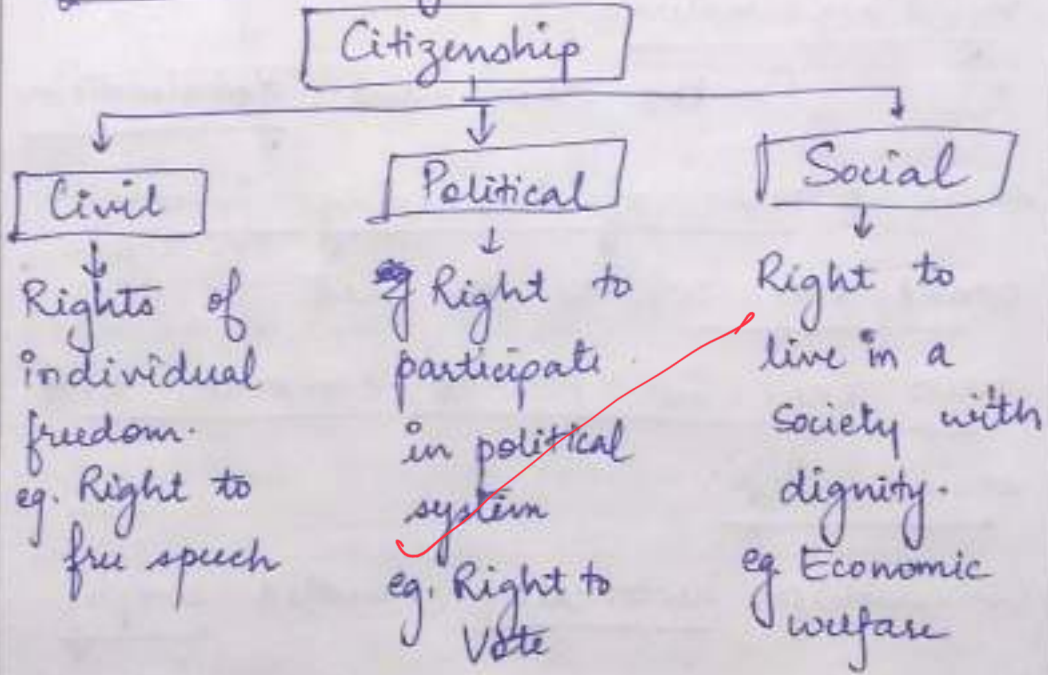 Citizenship
Civil
Rights of
individual
freedom.
eg. Right to
free speech
Political
Right to
participate
in political
system
eg. Right to
Vote
Social
Right to
live in a
Society with
dignity.
eg. Economic
welfare